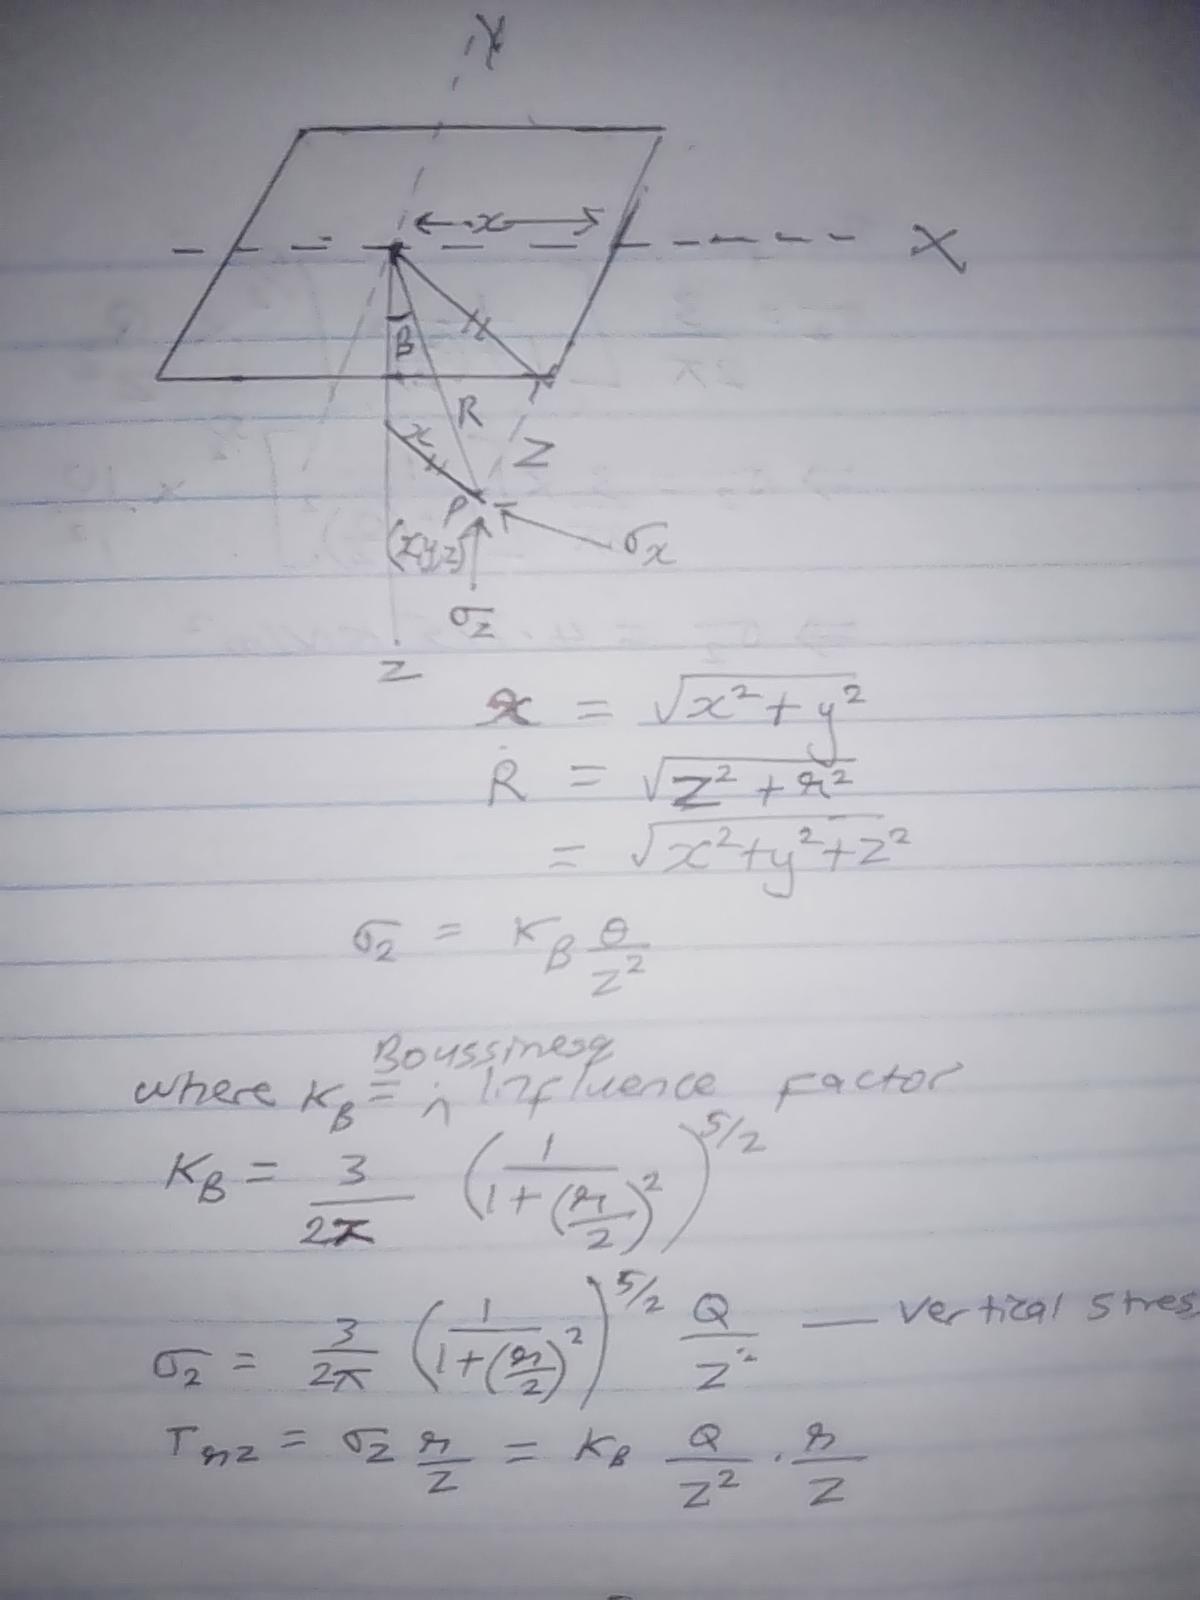 Y
x
X
B
r
R
r
Z
P
(x,y,z)
σx
σz
Z
r = √x² + y²
R = √z² + r²
= √x² + y² + z²
σz = KB Q/z²
Boussinesq
where KB = influence factor
KB = 3/2π (1/1+(r/z)²)^5/2
σz = 3/2π (1/1+(r/z)²)^5/2 Q/z² — vertical stres
Trz = σz r/z = KB Q/z² . r/z